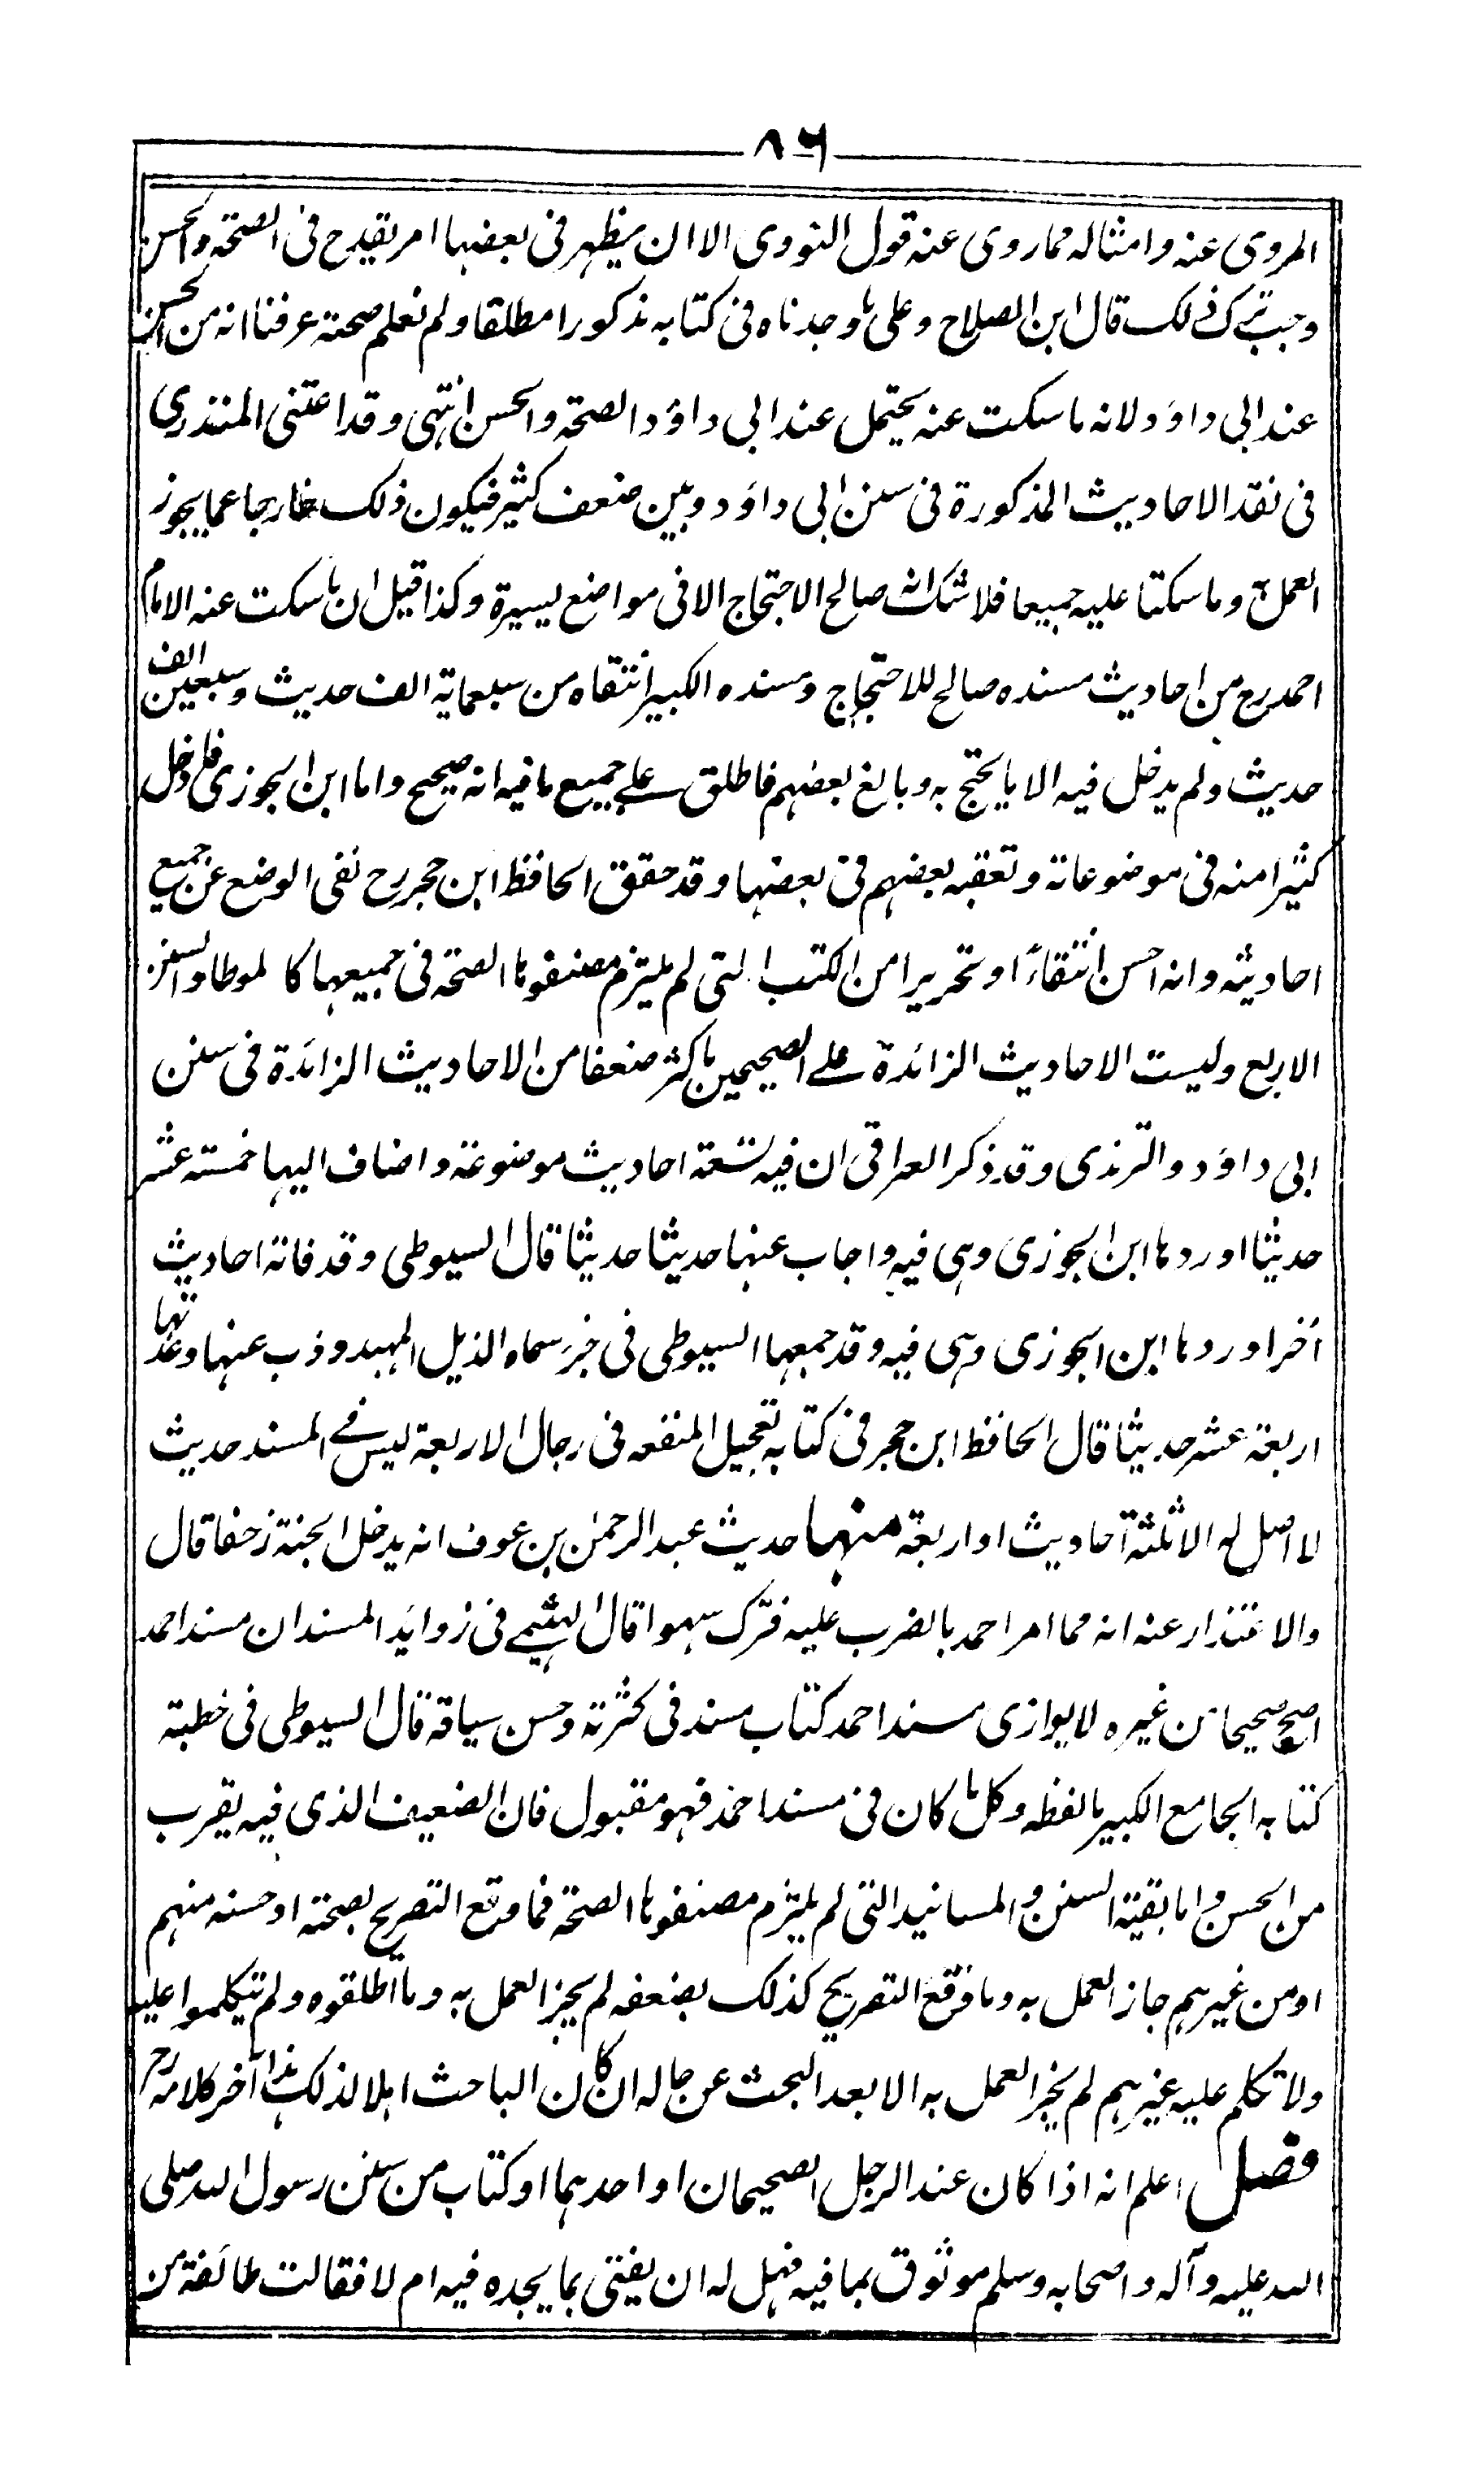 ٨٦
المروى عنه وامثاله مماروى عنه قول النووى الا ان يظهر فى بعضها امر يقدح فى الصحة والحسن
وجب ترك ذلك قال ابن الصلاح وعلى ما وجدناه فى كتابه مذكورا مطلقا ولم نعلم صحته عرفنا انه من الحسن
عند ابى داؤد ولانه ما سكت عنه يحتمل عند ابى داؤد الصحة والحسن انتهى وقد اعتنى المنذرى
فى نقد الاحاديث المذكورة فى سنن ابى داؤد وبين ضعف كثير فيكون ذلك خارجا عما يجوز
العمل به وما سكتا عليه جميعا فلا شك انه صالح الاحتجاج الا فى مواضع يسيرة وكذا قيل ان ما سكت عنه الامام
احمد رح من احاديث مسنده صالح للاحتجاج ومسنده الكبير انتقاه من سبعماية الف حديث وسبعين الف
حديث ولم يدخل فيه الا ما يحتج به وبالغ بعضهم فاطلق على جميع ما فيه انه صحيح واما ابن الجوزى فادخل
كثيرا منه فى موضوعاته وتعقبه بعضهم فى بعضها وقد حقق الحافظ ابن حجر رح نفى الوضع عن جميع
احاديثه وانه احسن انتقاءً او تحريرا من الكتب التى لم يلتزم مصنفوها الصحة فى جميعها كالموطا والسنن
الاربع وليست الاحاديث الزائدة على الصحيحين باكثر ضعفا من الاحاديث الزائدة فى سنن
ابى داؤد والترمذى وقد ذكر العراقى ان فيه تسعة احاديث موضوعة واضاف اليها خمسة عشر
حديثا اوردها ابن الجوزى وهى فيه واجاب عنها حديثا حديثا قال السيوطى وقد فاته احاديث
اُخر اوردها ابن الجوزى وهى فيه وقد جمعها السيوطى فى جزء سماه الذيل الممهد وذب عنها وعدتها
اربعة عشر حديثا قال الحافظ ابن حجر فى كتابه تعجيل المنفعه فى رجال الاربعة ليس فے المسند حديث
لا اصل له الا ثلثة احاديث او اربعة منها حديث عبد الرحمن بن عوف انه يدخل الجنة زحفا قال
والاعتذار عنه انه مما امر احمد بالضرب عليه فترك سهوا قال الهيثمے فى زوايد المسند ان مسند احمد
اصح صحيحا من غيره لا يوازى مسند احمد كتاب مسند فى كثرته وحسن سياقه قال السيوطى فى خطبة
كتابه الجامع الكبير ما لفظه وكل ما كان فى مسند احمد فهو مقبول فان الضعيف الذى فيه يقرب
من الحسن واما بقية السنن والمسانيد التى لم يلتزم مصنفوها الصحة فما وقع التصريح بصحته او حسنه منهم
او من غيرهم جاز العمل به وما وقع التصريح كذلك بضعفه لم يجز العمل به وما اطلقوه ولم يتكلموا عليه
ولا تكلم عليه غيرهم لم يجز العمل به الا بعد البحث عن حاله ان كان الباحث اهلا لذلك هذا آخر كلامه رح
فصل اعلم انه اذا كان عند الرجل الصحيحان او احدهما او كتاب من سنن رسول الله صلى
الله عليه وآله واصحابه وسلم موثوق بما فيه فهل له ان يفتى بما يجده فيه ام لا فقالت طائفة من